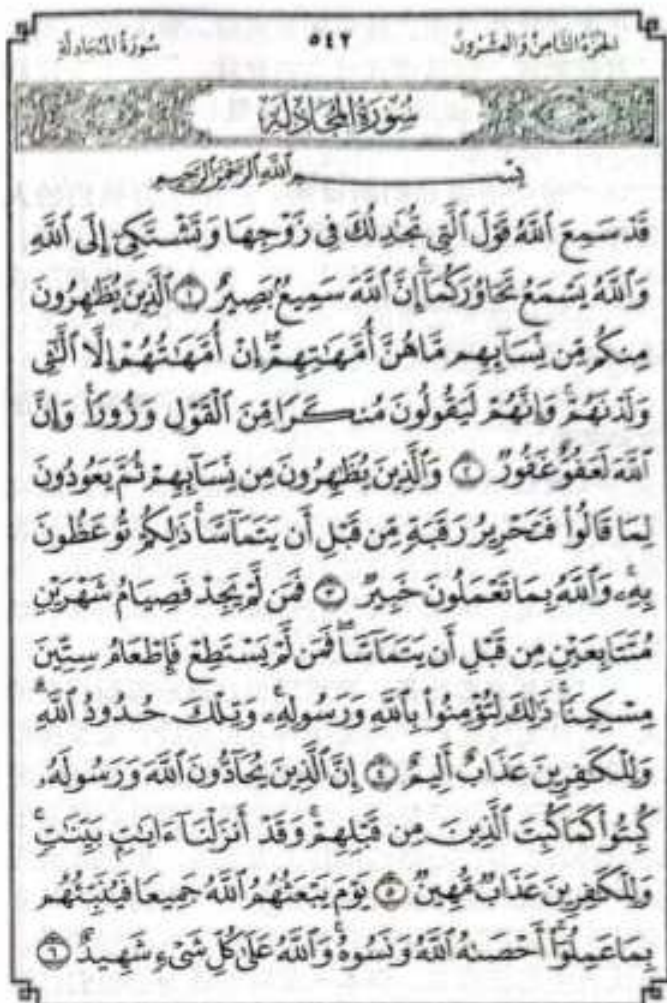 الجزء الثامن والعشرون ٥٤٢ سورة المجادلة
سُورَةُ المُجَادلَةِ
بِسْمِ ٱللَّهِ ٱلرَّحْمَٰنِ ٱلرَّحِيمِ
قَدْ سَمِعَ ٱللَّهُ قَوْلَ ٱلَّتِي تُجَٰدِلُكَ فِي زَوْجِهَا وَتَشْتَكِيٓ إِلَى ٱللَّهِ
وَٱللَّهُ يَسْمَعُ تَحَاوُرَكُمَآۚ إِنَّ ٱللَّهَ سَمِيعٌۢ بَصِيرٌ ١ ٱلَّذِينَ يُظَٰهِرُونَ
مِنكُم مِّن نِّسَآئِهِم مَّا هُنَّ أُمَّهَٰتِهِمْۖ إِنْ أُمَّهَٰتُهُمْ إِلَّا ٱلَّٰٓـِٔي
وَلَدْنَهُمْۚ وَإِنَّهُمْ لَيَقُولُونَ مُنكَرًا مِّنَ ٱلْقَوْلِ وَزُورًاۚ وَإِنَّ
ٱللَّهَ لَعَفُوٌّ غَفُورٌ ٢ وَٱلَّذِينَ يُظَٰهِرُونَ مِن نِّسَآئِهِمْ ثُمَّ يَعُودُونَ
لِمَا قَالُوا۟ فَتَحْرِيرُ رَقَبَةٍ مِّن قَبْلِ أَن يَتَمَآسَّاۚ ذَٰلِكُمْ تُوعَظُونَ
بِهِۦۚ وَٱللَّهُ بِمَا تَعْمَلُونَ خَبِيرٌ ٣ فَمَن لَّمْ يَجِدْ فَصِيَامُ شَهْرَيْنِ
مُتَتَابِعَيْنِ مِن قَبْلِ أَن يَتَمَآسَّاۖ فَمَن لَّمْ يَسْتَطِعْ فَإِطْعَامُ سِتِّينَ
مِسْكِينًاۚ ذَٰلِكَ لِتُؤْمِنُوا۟ بِٱللَّهِ وَرَسُولِهِۦۚ وَتِلْكَ حُدُودُ ٱللَّهِۗ
وَلِلْكَٰفِرِينَ عَذَابٌ أَلِيمٌ ٤ إِنَّ ٱلَّذِينَ يُحَآدُّونَ ٱللَّهَ وَرَسُولَهُۥ
كُبِتُوا۟ كَمَا كُبِتَ ٱلَّذِينَ مِن قَبْلِهِمْۚ وَقَدْ أَنزَلْنَآ ءَايَٰتٍۭ بَيِّنَٰتٍۚ
وَلِلْكَٰفِرِينَ عَذَابٌ مُّهِينٌ ٥ يَوْمَ يَبْعَثُهُمُ ٱللَّهُ جَمِيعًا فَيُنَبِّئُهُم
بِمَا عَمِلُوٓا۟ۚ أَحْصَىٰهُ ٱللَّهُ وَنَسُوهُۚ وَٱللَّهُ عَلَىٰ كُلِّ شَيْءٍ شَهِيدٌ ٦